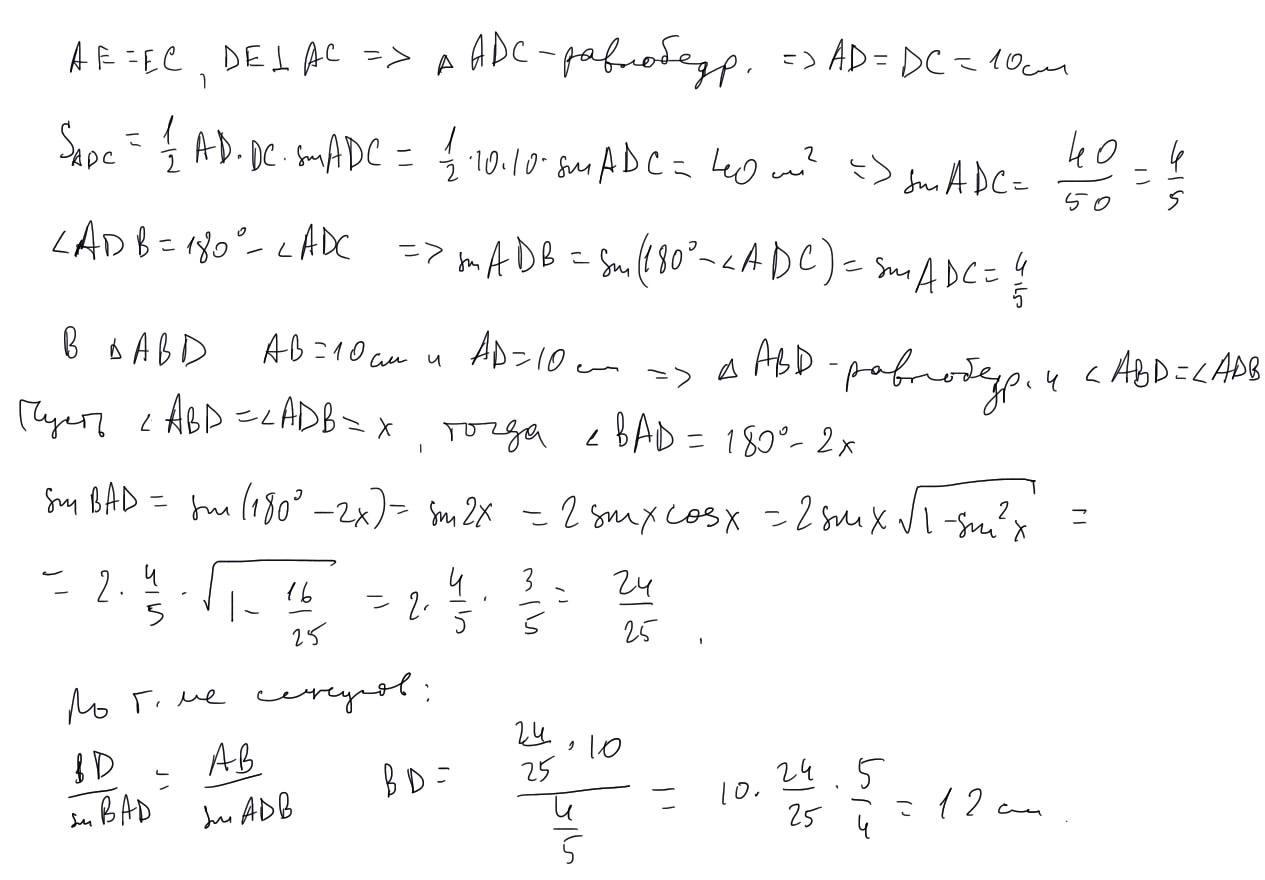 AE=EC, DE⊥AC => △ADC - равнобедр. => AD=DC=10см
S_ADC = 1/2 AD·DC·sin ADC = 1/2·10·10·sin ADC = 40 см² => sin ADC = 40/50 = 4/5
∠ADB=180°-∠ADC => sin ADB = sin(180°-∠ADC) = sin ADC = 4/5
В △ABD AB=10см и AD=10см => △ABD - равнобедр. и ∠ABD=∠ADB
Пусть ∠ABD=∠ADB=x, тогда ∠BAD = 180°-2x
sin BAD = sin(180°-2x) = sin 2x = 2 sin x cos x = 2 sin x √(1-sin²x) =
= 2·4/5·√(1-16/25) = 2·4/5·3/5 = 24/25.
По т. ме синусов:
BD/sin BAD = AB/sin ADB BD = (24/25·10)/(4/5) = 10·24/25·5/4 = 12 см.